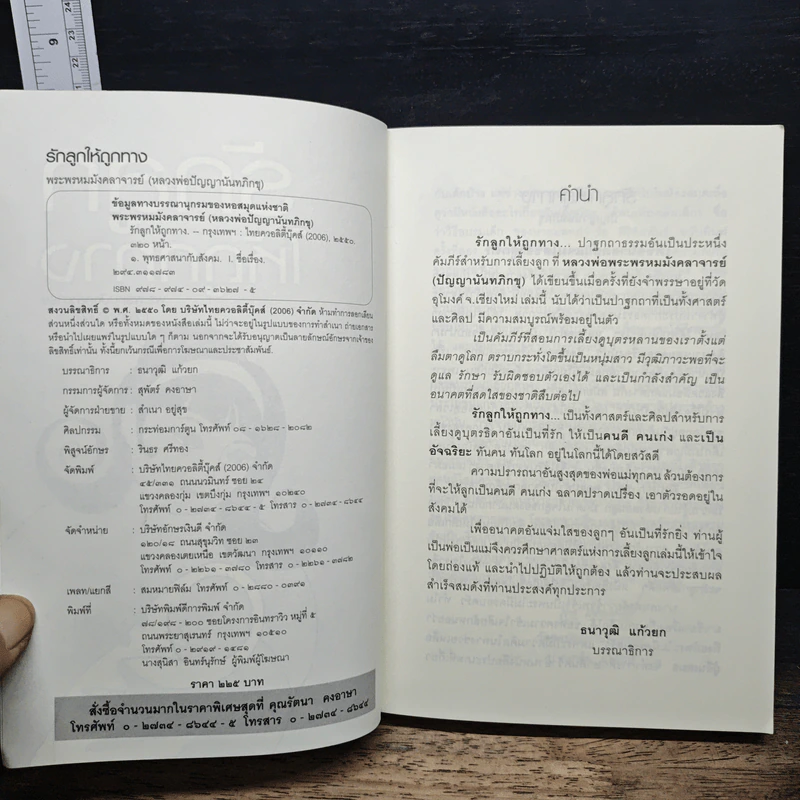 รักลูกให้ถูกทาง
พระพรหมมังคลาจารย์ (หลวงพ่อปัญญานันทภิกขุ)
ข้อมูลทางบรรณานุกรมของหอสมุดแห่งชาติ
พระพรหมมังคลาจารย์ (หลวงพ่อปัญญานันทภิกขุ)
รักลูกให้ถูกทาง. -- กรุงเทพฯ : ไทยควอลิตี้บุ๊คส์ (2006), ๒๕๕๐.
๓๒๐ หน้า.
๑. พุทธศาสนากับสังคม. I. ชื่อเรื่อง.
๒๙๔.๓๑๑๗๘๓
ISBN ๙๗๘ - ๙๗๔ - ๐๙ - ๓๖๒๗ - ๕
สงวนลิขสิทธิ์ © พ.ศ. ๒๕๕๐ โดย บริษัทไทยควอลิตี้บุ๊คส์ (2006) จำกัด ห้ามทำการลอกเลียน
ส่วนหนึ่งส่วนใด หรือทั้งหมดของหนังสือเล่มนี้ ไม่ว่าจะอยู่ในรูปแบบของการทำสำเนา ถ่ายเอกสาร
หรือนำไปเผยแพร่ในรูปแบบใด ๆ ก็ตาม นอกจากจะได้รับอนุญาตเป็นลายลักษณ์อักษรจากเจ้าของ
ลิขสิทธิ์เท่านั้น ทั้งนี้ยกเว้นกรณีเพื่อการโฆษณาและประชาสัมพันธ์.
บรรณาธิการ : ธนาวุฒิ แก้วยก
กรรมการผู้จัดการ : สุพัตร์ คงอาษา
ผู้จัดการฝ่ายขาย : สำเนา อยู่สุข
ศิลปกรรม : กระท่อมการ์ตูน โทรศัพท์ ๐๘ - ๑๖๒๘ - ๒๐๘๒
พิสูจน์อักษร : รินธร ศรีทอง
จัดพิมพ์ : บริษัทไทยควอลิตี้บุ๊คส์ (2006) จำกัด
๔๕/๓๓๑ ถนนนวมินทร์ ซอย ๒๔
แขวงคลองกุ่ม เขตบึงกุ่ม กรุงเทพฯ ๑๐๒๔๐
โทรศัพท์ ๐ - ๒๗๓๔ - ๘๖๔๔ - ๕ โทรสาร ๐ - ๒๗๓๔ - ๘๖๔๔
จัดจำหน่าย : บริษัทอักษรเงินดี จำกัด
๑๒๐/๑๘ ถนนสุขุมวิท ซอย ๒๓
แขวงคลองเตยเหนือ เขตวัฒนา กรุงเทพฯ ๑๐๑๑๐
โทรศัพท์ ๐ - ๒๒๖๑ - ๓๗๘๐ โทรสาร ๐ - ๒๒๖๑ - ๓๗๘๒
เพลท/แยกสี : สมหมายฟิล์ม โทรศัพท์ ๐ - ๒๘๘๐ - ๐๓๙๑
พิมพ์ที่ : บริษัทพิมพ์ดีการพิมพ์ จำกัด
๗๘/๑๙๘ - ๒๐๐ ซอยโครงการอินทราวิว หมู่ที่ ๕
ถนนพระยาสุเรนทร์ กรุงเทพฯ ๑๐๕๑๐
โทรศัพท์ ๐ - ๒๙๑๙ - ๑๔๘๑
นางสุนิสา อินทร์นุรักษ์ ผู้พิมพ์ผู้โฆษณา
ราคา ๒๒๕ บาท
สั่งซื้อจำนวนมากในราคาพิเศษสุดที่ คุณรัตนา คงอาษา
โทรศัพท์ ๐ - ๒๗๓๔ - ๘๖๔๔ - ๕ โทรสาร ๐ - ๒๗๓๔ - ๘๖๔๔
คำนำ
รักลูกให้ถูกทาง... ปาฐกถาธรรมอันเป็นประหนึ่ง
คัมภีร์สำหรับการเลี้ยงลูก ที่ หลวงพ่อพระพรหมมังคลาจารย์
(ปัญญานันทภิกขุ) ได้เขียนขึ้นเมื่อครั้งที่ยังจำพรรษาอยู่ที่วัด
อุโมงค์ จ.เชียงใหม่ เล่มนี้ นับได้ว่าเป็นปาฐกถาที่เป็นทั้งศาสตร์
และศิลป มีความสมบูรณ์พร้อมอยู่ในตัว
เป็นคัมภีร์ที่สอนการเลี้ยงดูบุตรหลานของเราตั้งแต่
ลืมตาดูโลก ตราบกระทั่งโตขึ้นเป็นหนุ่มสาว มีวุฒิภาวะพอที่จะ
ดูแล รักษา รับผิดชอบตัวเองได้ และเป็นกำลังสำคัญ เป็น
อนาคตที่สดใสของชาติสืบต่อไป
รักลูกให้ถูกทาง... เป็นทั้งศาสตร์และศิลปสำหรับการ
เลี้ยงดูบุตรธิดาอันเป็นที่รัก ให้เป็นคนดี คนเก่ง และเป็น
อัจฉริยะ ทันคน ทันโลก อยู่ในโลกนี้ได้โดยสวัสดี
ความปรารถนาอันสูงสุดของพ่อแม่ทุกคน ล้วนต้องการ
ที่จะให้ลูกเป็นคนดี คนเก่ง ฉลาดปราดเปรื่อง เอาตัวรอดอยู่ใน
สังคมได้
เพื่ออนาคตอันแจ่มใสของลูกๆ อันเป็นที่รักยิ่ง ท่านผู้
เป็นพ่อเป็นแม่จึงควรศึกษาศาสตร์แห่งการเลี้ยงลูกเล่มนี้ให้เข้าใจ
โดยถ่องแท้ และนำไปปฏิบัติให้ถูกต้อง แล้วท่านจะประสบผล
สำเร็จสมดังที่ท่านประสงค์ทุกประการ
ธนาวุฒิ แก้วยก
บรรณาธิการ
9
24
23
22
21